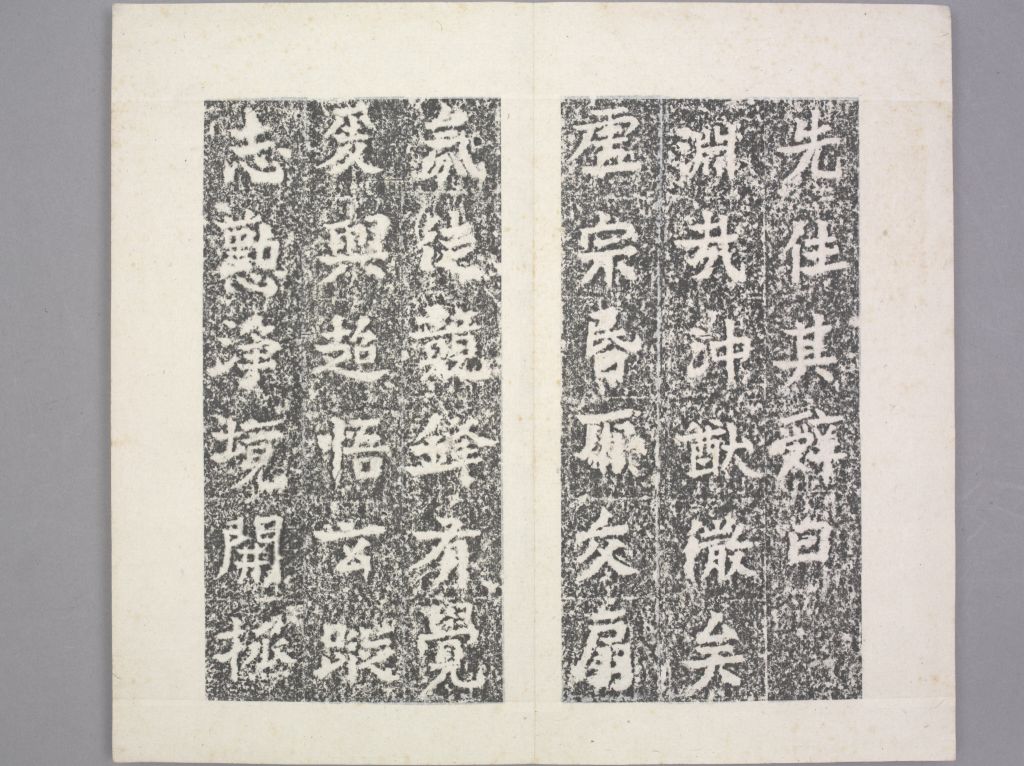 先住其辭曰
淵哉沖猷微矣
虛宗昏交扇
徒競鋒有覺
爰興超悟玄蹤
志懃淨境開拯